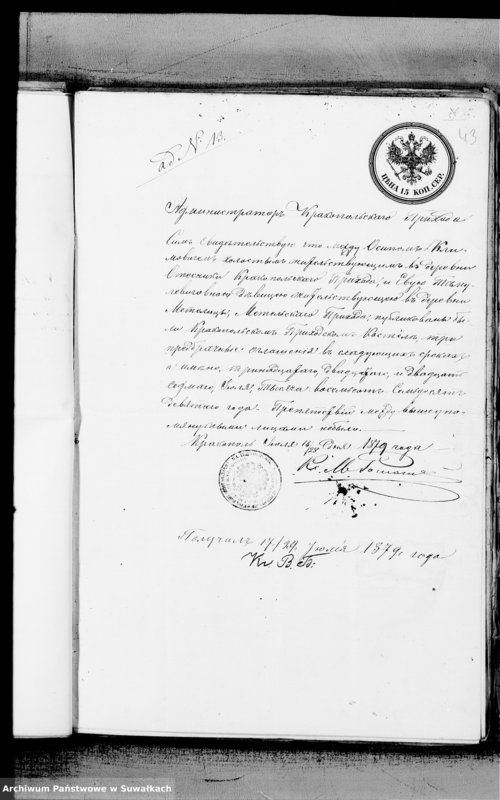 43
ад № 13.
ЦѢНА 15 КОП. СЕР.
Администраторъ Кракопольскаго Прихода
Симъ Свидѣтельствую что между Осипомъ Кли
мовичемъ холостымъ жительствующимъ въ деревни
Кракопольскаго Прихода, и Евою
дѣвицею жительствующею въ деревни
Метелицы, Метельскаго Прихода; публикованы бы
ли Кракопольскомъ Приходскомъ Костелѣ, три
предбрачные оглашенія въ слѣдующихъ срокахъ
а имѣно, тринадцатаго, двадцатаго, и двадцать
седмаго Іюля, тысяча восемьсотъ Семьдесятъ
девятаго года. Препятствій между вышеупо-
мянутыми лицами небыли.
Кракополь Іюля 16/28 дня 1879 года
Кс. М.
Получилъ 17/29 Іюля 1879 года
Кс В. Б.
Archiwum Państwowe w Suwałkach